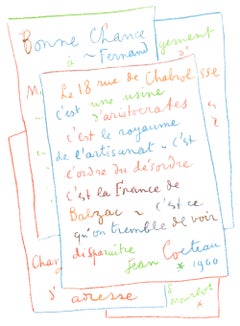 Bonne Chance
à ~ Fernand
gement
Le 18 rue de Chabrol
c'est une usine
d'aristocrates
c'est le royaume
de l'artisanat ~ c'est
l'ordre du désordre
c'est la France de
Balzac ~ c'est ce
qu'on tremble de voir
disparaitre
Jean Cocteau
* 1960
d'adresse
Mourlot